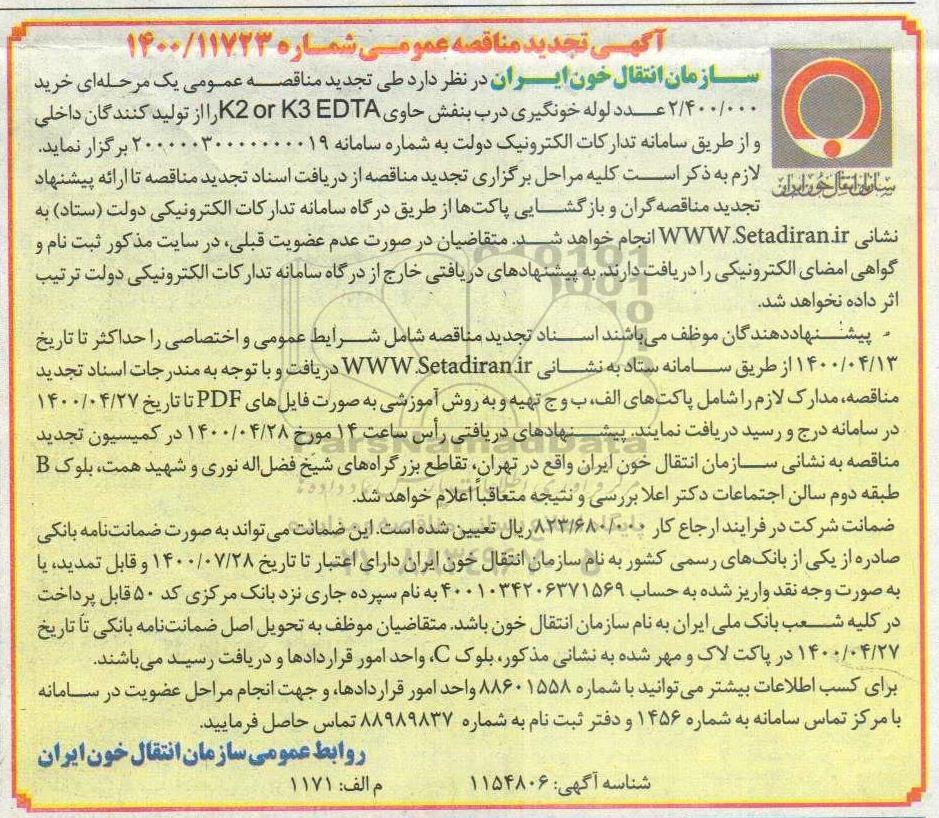 آگهی تجدید مناقصه عمومی شماره ۱۴۰۰/۱۱۷۲۳
سازمان انتقال خون ایران
سازمان انتقال خون ایران در نظر دارد طی تجدید مناقصه عمومی یک مرحله‌ای خرید
۲/۴۰۰/۰۰۰ عدد لوله خونگیری درب بنفش حاوی K2 or K3 EDTA را از تولید کنندگان داخلی
و از طریق سامانه تدارکات الکترونیک دولت به شماره سامانه ۲۰۰۰۰۰۳۰۰۰۰۰۰۰۰۱۹ برگزار نماید.
لازم به ذکر است کلیه مراحل برگزاری تجدید مناقصه از دریافت اسناد تجدید مناقصه تا ارائه پیشنهاد
تجدید مناقصه‌گران و بازگشایی پاکت‌ها از طریق درگاه سامانه تدارکات الکترونیکی دولت (ستاد) به
نشانی WWW.Setadiran.ir انجام خواهد شد. متقاضیان در صورت عدم عضویت قبلی، در سایت مذکور ثبت نام و
گواهی امضای الکترونیکی را دریافت دارند. به پیشنهادهای دریافتی خارج از درگاه سامانه تدارکات الکترونیکی دولت ترتیب
اثر داده نخواهد شد.
- پیشنهاددهندگان موظف می‌باشند اسناد تجدید مناقصه شامل شرایط عمومی و اختصاصی را حداکثر تا تاریخ
۱۴۰۰/۰۴/۱۳ از طریق سامانه ستاد به نشانی WWW.Setadiran.ir دریافت و با توجه به مندرجات اسناد تجدید
مناقصه، مدارک لازم را شامل پاکت‌های الف، ب و ج تهیه و به روش آموزشی به صورت فایل‌های PDF تا تاریخ ۱۴۰۰/۰۴/۲۷
در سامانه درج و رسید دریافت نمایند. پیشنهادهای دریافتی رأس ساعت ۱۴ مورخ ۱۴۰۰/۰۴/۲۸ در کمیسیون تجدید
مناقصه به نشانی سازمان انتقال خون ایران واقع در تهران، تقاطع بزرگراه‌های شیخ فضل‌اله نوری و شهید همت، بلوک B
طبقه دوم سالن اجتماعات دکتر اعلا بررسی و نتیجه متعاقباً اعلام خواهد شد.
ضمانت شرکت در فرایند ارجاع کار ۸۲۳/۶۸۰/۰۰۰ ریال تعیین شده است. این ضمانت می‌تواند به صورت ضمانت‌نامه بانکی
صادره از یکی از بانک‌های رسمی کشور به نام سازمان انتقال خون ایران دارای اعتبار تا تاریخ ۱۴۰۰/۰۷/۲۸ و قابل تمدید، یا
به صورت وجه نقد واریز شده به حساب ۴۰۰۱۰۳۴۲۰۶۳۷۱۵۶۹ به نام سپرده جاری نزد بانک مرکزی کد ۵۰ قابل پرداخت
در کلیه شعب بانک ملی ایران به نام سازمان انتقال خون باشد. متقاضیان موظف به تحویل اصل ضمانت‌نامه بانکی تا تاریخ
۱۴۰۰/۰۴/۲۷ در پاکت لاک و مهر شده به نشانی مذکور، بلوک C، واحد امور قراردادها و دریافت رسید می‌باشند.
برای کسب اطلاعات بیشتر می‌توانید با شماره ۸۸۶۰۱۵۵۸ واحد امور قراردادها، و جهت انجام مراحل عضویت در سامانه
با مرکز تماس سامانه به شماره ۱۴۵۶ و دفتر ثبت نام به شماره ۸۸۹۸۹۸۳۷ تماس حاصل فرمایید.
روابط عمومی سازمان انتقال خون ایران
شناسه آگهی: ۱۱۵۴۸۰۶ م الف: ۱۱۷۱